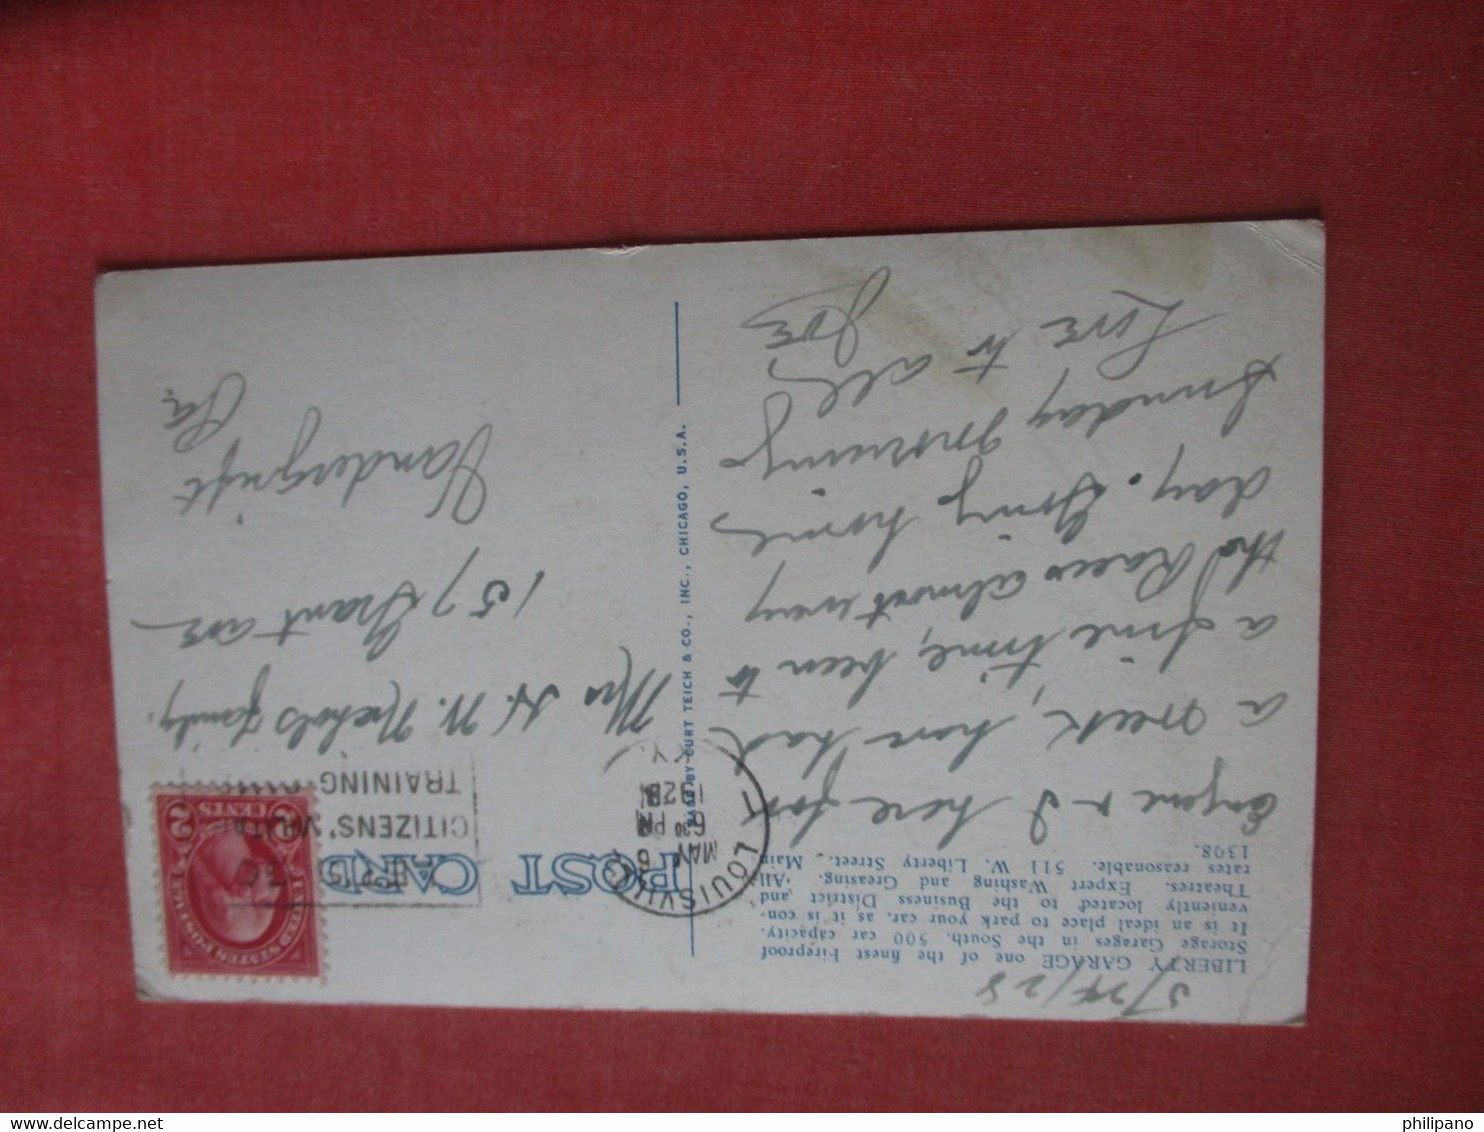 LIBERTY GARAGE one of the finest Fireproof
Storage Garages in the South. 500 car capacity.
It is an ideal place to park your car, as it is con-
veniently located to the Business District and
Theatres. Expert Washing and Greasing. All
rates reasonable. 511 W. Liberty Street. Main
1308.
Eugene & I here for
a week, have had
a fine time, been to
the Races almost every
day. Going home
Sunday Morning
Love to all
POST CARD
LOUISVILLE
MAY 6
6 30 PM
1928
KY.
CITIZENS' MILITARY
TRAINING
UNITED STATES POSTAGE
2 CENTS 2
Mrs H. W. Nichols & family.
157 Grant ave
Vandergrift
Pa.
MADE BY CURT TEICH & CO., INC., CHICAGO, U.S.A.
philipano